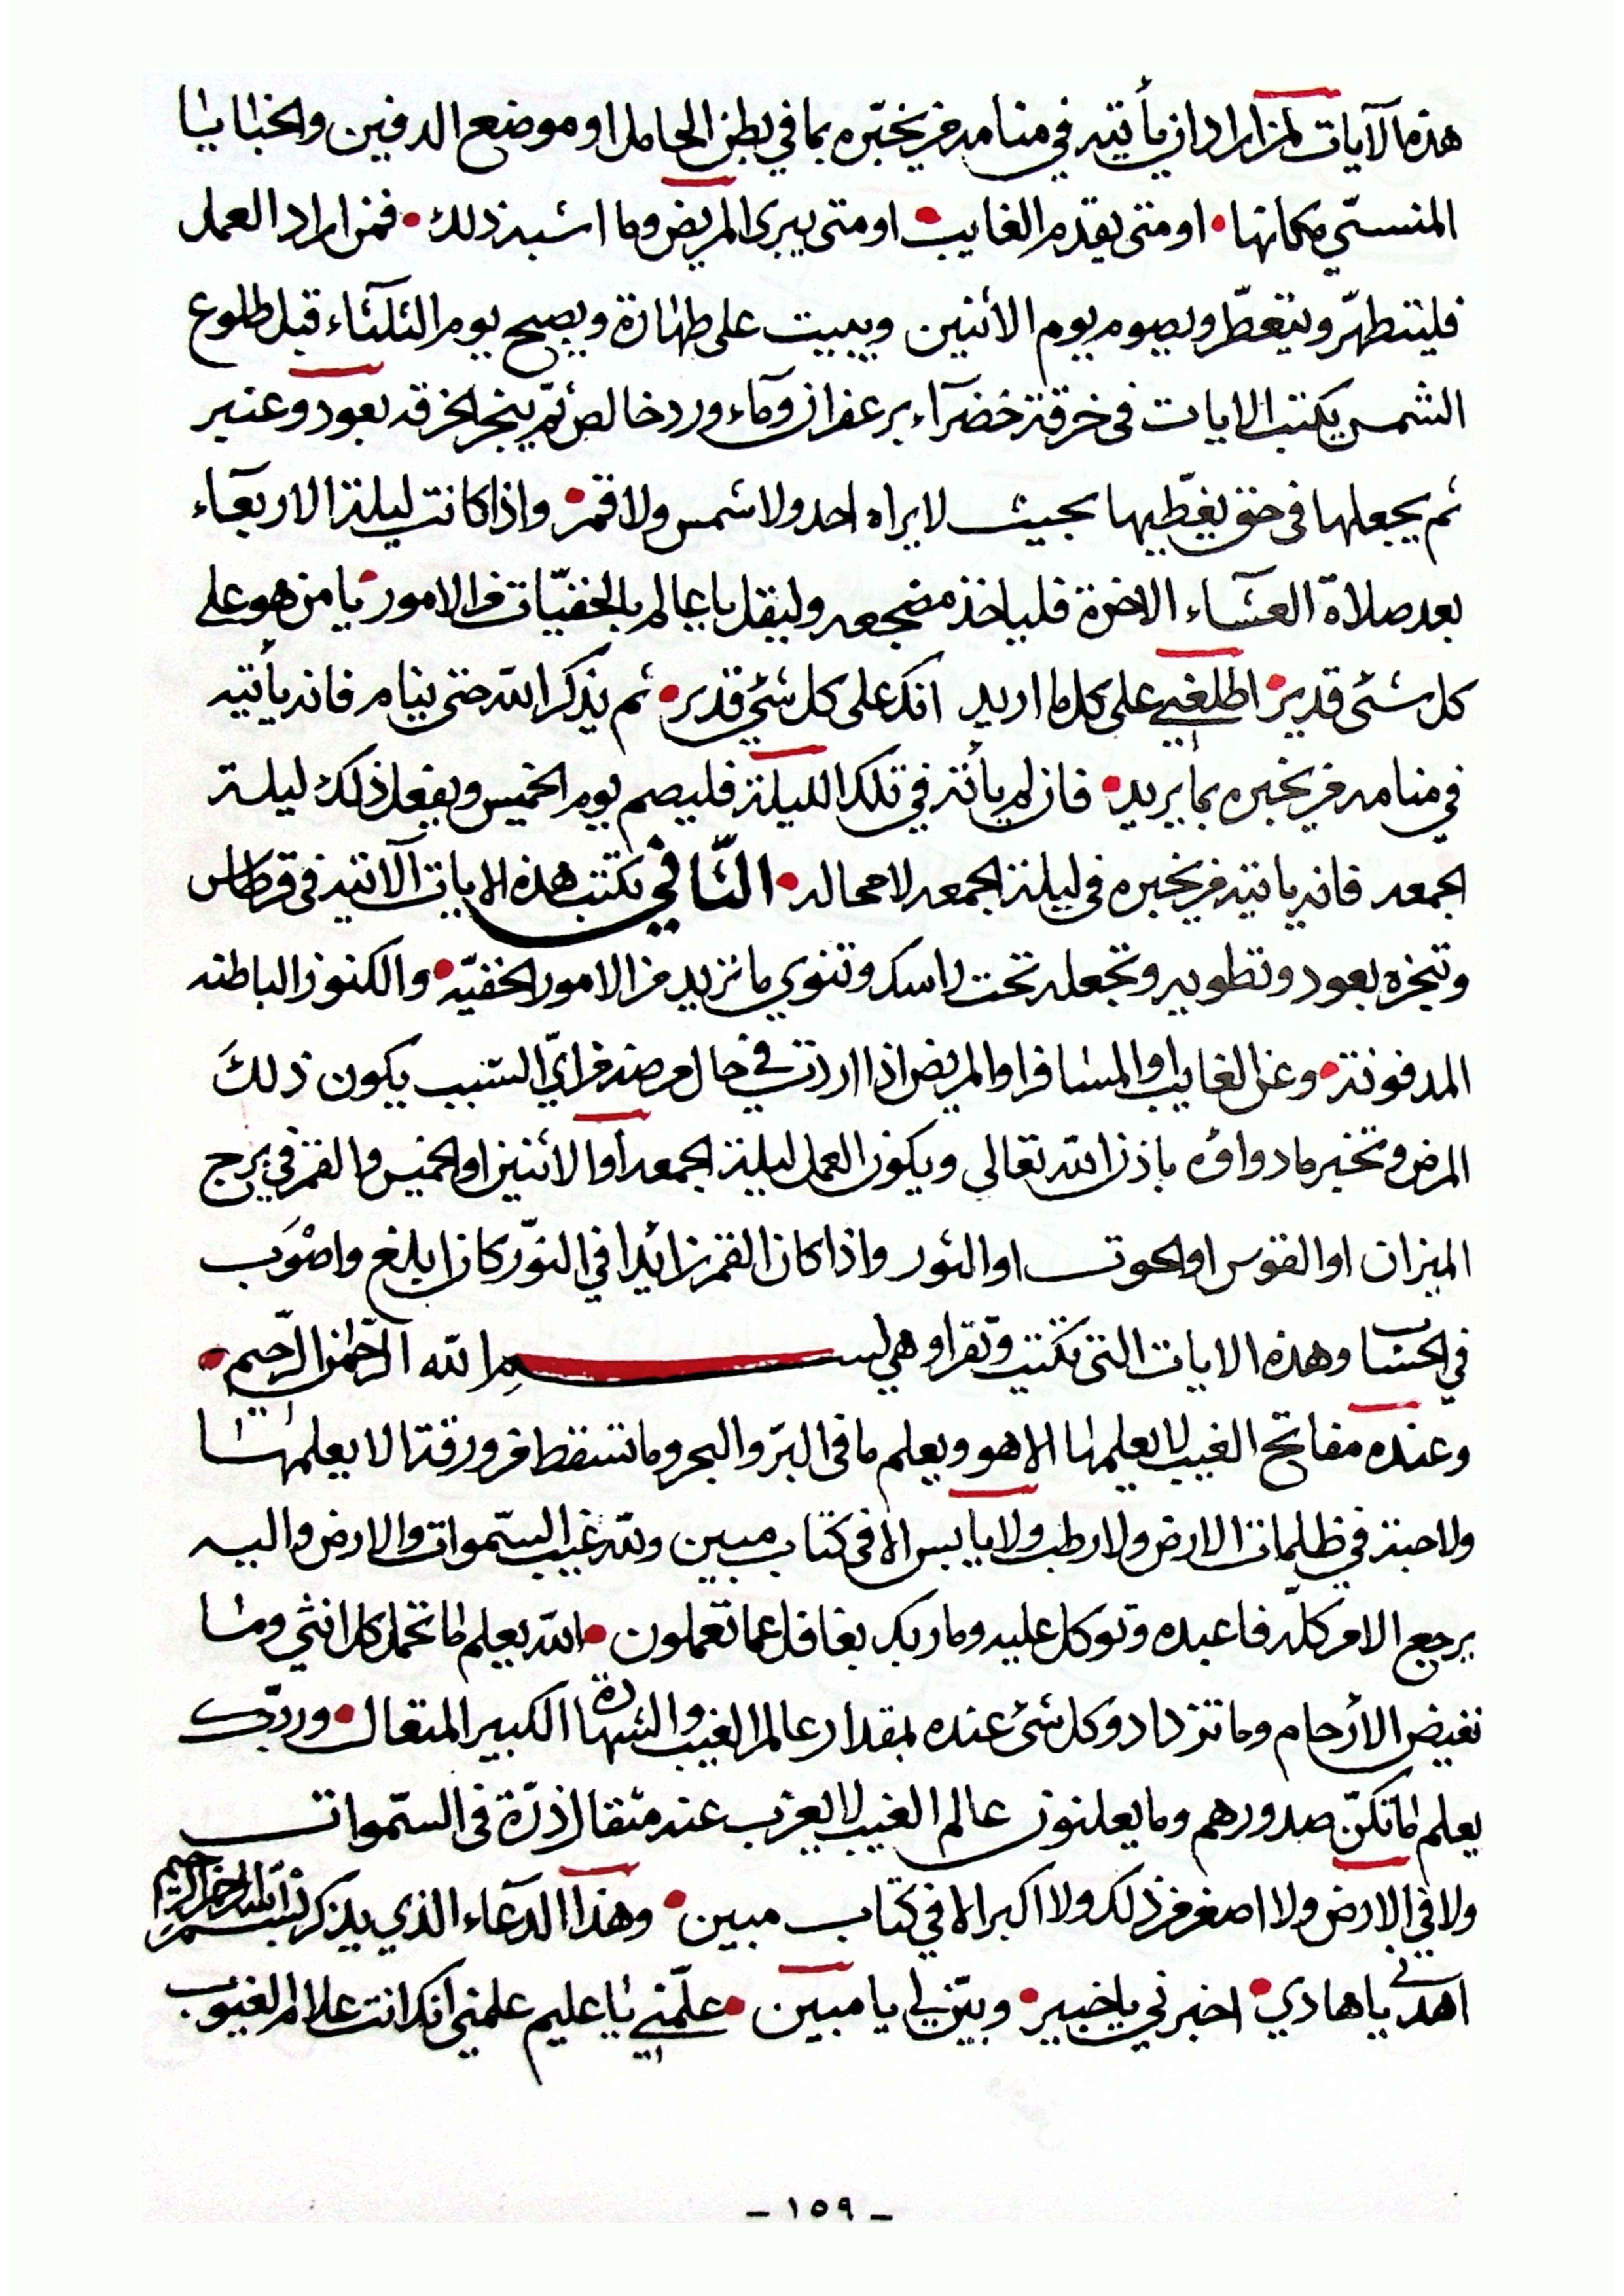 هذه الآيات لمن اراد ان يأتيه في منامه من يخبّره بما في بطن الحامل او موضع الدفين والخبايا
المنسىّ مكانها • او متى يقدم الغايب • او متى يبرى المريض وما اشبه ذلك • فمن اراد العمل
فليتطهّر ويتعطّر ويصوم يوم الأثنين ويبيت على طهارة ويصبح يوم الثلثاء قبل طلوع
الشمس يكتب الايات فى خرقة خضرآء بزعفران ومآء ورد خالص ثمّ يبخر الخرقه بعود وعنبر
ثم يجعلها فى حق يغطّيها بحيث لا يراه احد ولا شمس ولا قمر • واذا كانت ليلة الاربعآء
بعد صلاة العشآء الاخرة فلياخذ مضجعه وليقل يا عالم بالخفيّات من الامور • يا من هو على
كل شئ قدير • اطلعني على كل ما اريد انك على كل شئ قدير • ثم يذكر الله حتى ينام فانه يأتيه
في منامه من يخبره بما يريد • فان لم يأته في تلك الليلة فليصم يوم الخميس ويفعل ذلك ليلة
الجمعه فانه ياتيه من يخبره في ليلة الجمعه لا محاله • الثّاني تكتب هذه الايات الآتيه فى قرطاس
وتبخره بعود وتطويه وتجعله تحت راسك وتنوي ما تريد من الامور الخفيّه • والكنوز الباطنه
المدفونة • وعن الغايب او المسافر او المريض اذا اردت في حال مرضه من ايّ السبب يكون ذلكَ
المرض وتخبر ما دواؤه باذن الله تعالى ويكون العمل ليلة الجمعه أو الأثنين او الخميس والقمر في برج
الميزان او القوس او الحوت او الثور واذا كان القمر زائدا في النوّر كان ابلغ واصْوَب
في الحساب وهذه الايات التى تكتب وتقرا وهي بسم الله الرّحمٰن الرّحيم •
وعنده مفاتح الغيب لا يعلمها الا هو ويعلم ما فى البرّ والبحر وما تسقط من ورقة الا يعلمها
ولا حبة في ظلمات الارض ولا رطب ولا يابس الا فى كتاب مبين ولله غيب السّموات والارض واليه
يرجع الامر كلّه فاعبده وتوكل عليه وما ربك بغافل عما تعملون • الله يعلم ما تحمل كل انثى وما
تغيض الأرحام وما تزداد وكل شئ عنده بمقدار عالم الغيب والشهادة الكبير المتعال • وربّك
يعلم ما تكنّ صدورهم وما يعلنون عالم الغيب لا يعزب عنه مثقال ذرّة فى السّموات
ولا في الارض ولا اصغر من ذلك ولا اكبر الا في كتاب مبين • وهذا الدعآء الذي يذكر بسم الله الرحمن الرحيم
اهدنى يا هادي • اخبرني يا خبير • وبيّن لي يا مبين • علّمني يا عليم علمني انك انت علام الغيوب
- ١٥٩ -